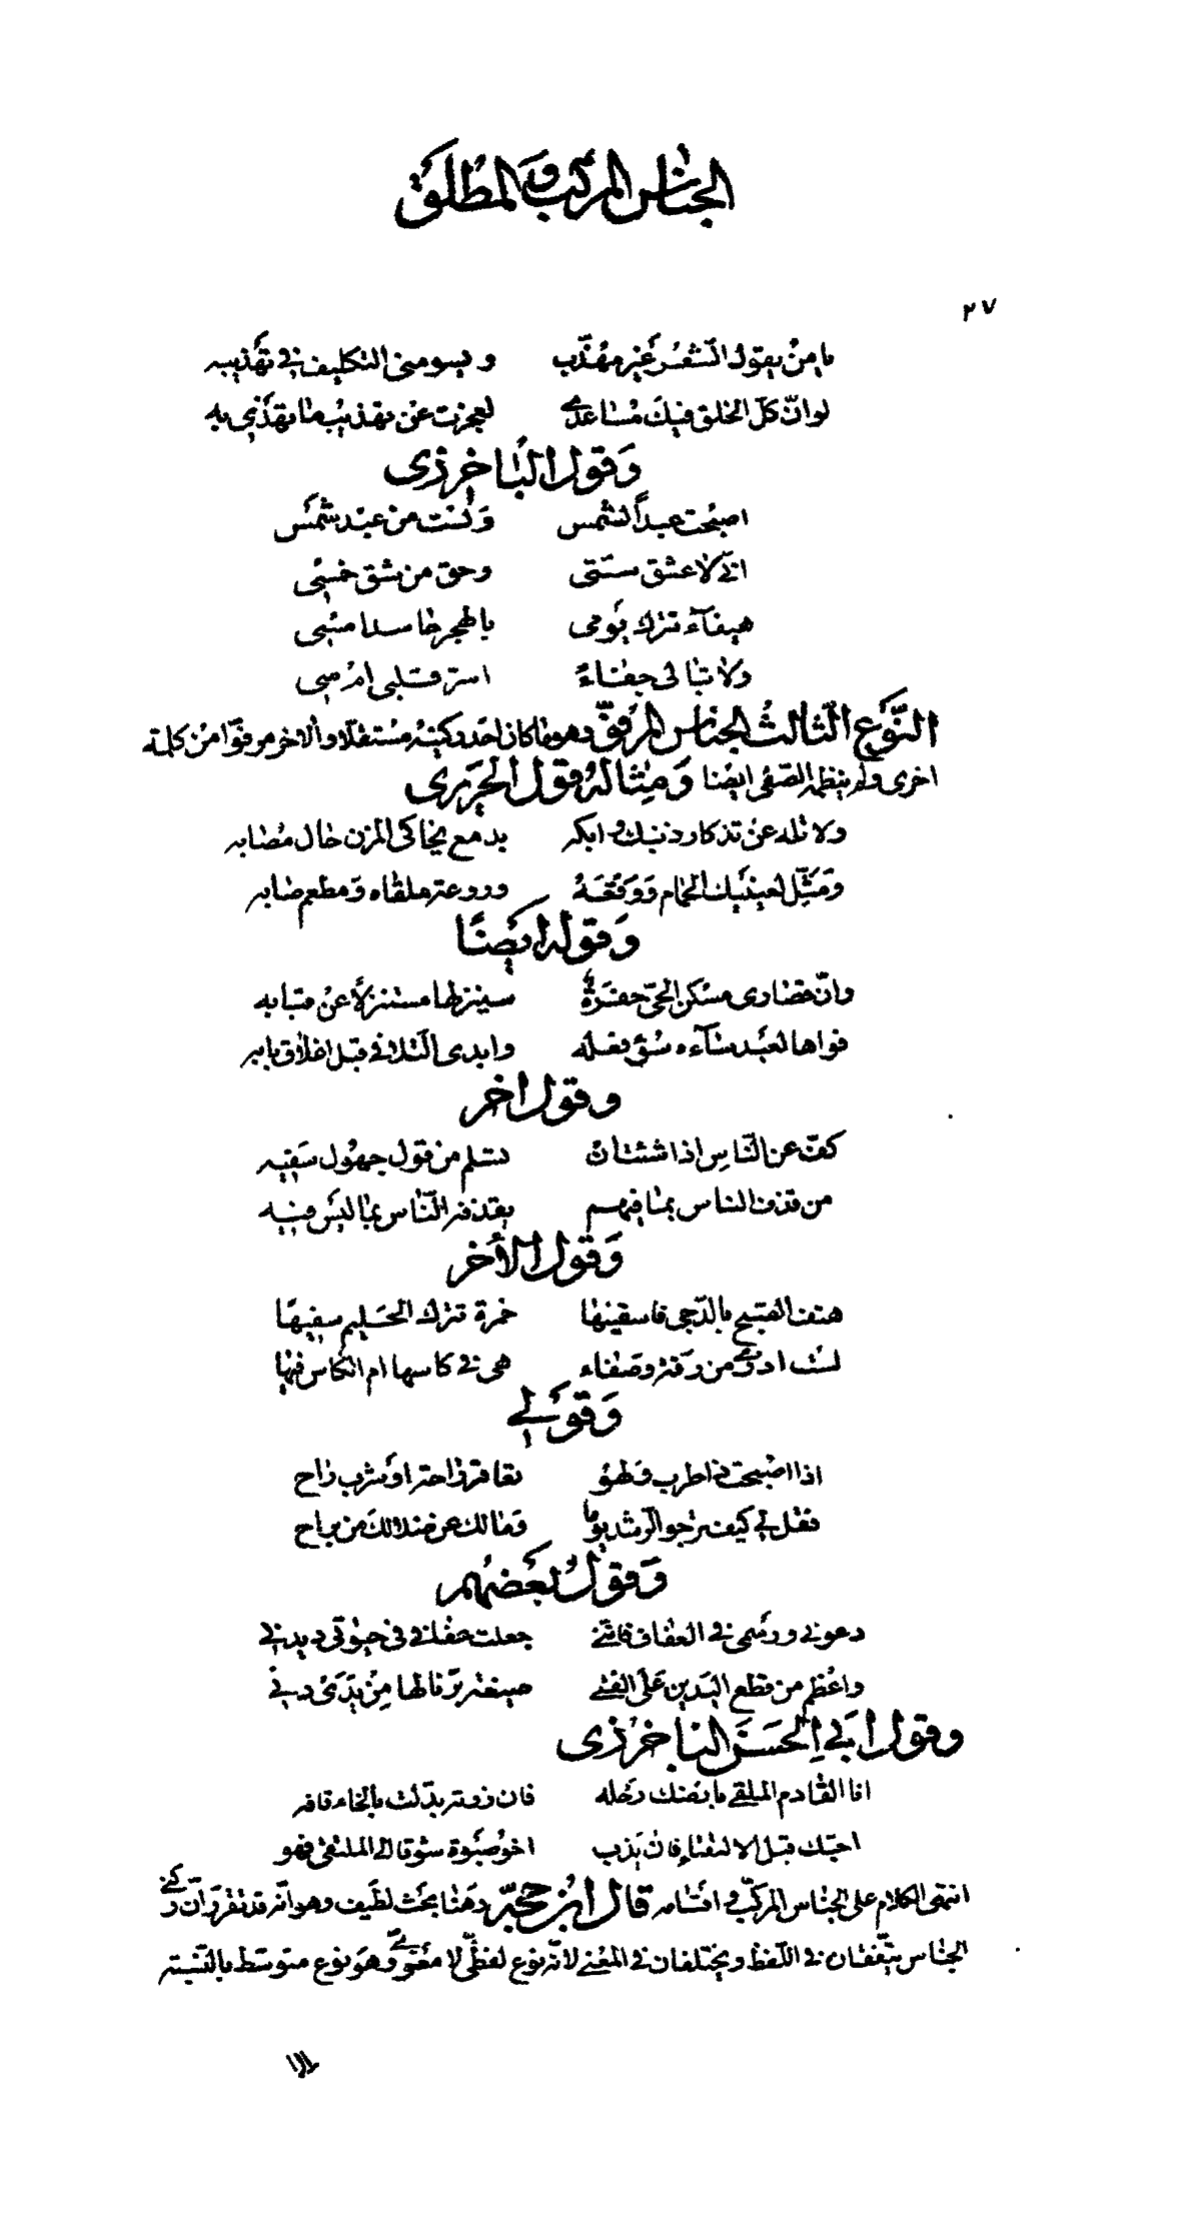 الجناس المركب والمطلق
٢٧
يا من يقول الشعر غير مهذب ويسومني التكليف في تهذيبه
لو ان كل الخلق فيك مساعدي لعجزت عن تهذيب ما تهذي به
وقول الباخرزي
اصبحت عبدا لشمس ولست من عبد شمس
اني لاعشق ستي وحق من شق خمسي
هيفاء تترك يومي بالهجر حاسدا مسي
ولا تبالي جفاء اسر قلبي ام سي
النوع الثالث الجناس المرفق وهو ما كان احد ركنيه مستقلا والاخر مرفوا من كلمة
اخرى ولم ينظمه الصفي ايضا ومثاله قول الحريري
ولا تله عن تذكار ذنبك وابكه بدمع يحاكي المزن حال مصابه
ومثل لعينيك الحمام ووقعه وروعة ملقاه ومطعم صابه
وقوله ايضا
وان قصارى مسكن الحي حفرة سينزلها مستنزلا عن قبابه
فواها لعبد ساءه سوء فعله وابدى التلافي قبل اغلاق بابه
وقول اخر
كف عن الناس اذا شئت ان تسلم من قول جهول سفيه
من قذف الناس بما فيهم يقذفه الناس بما ليس فيه
وقول الأخر
هتف الصبح بالدجى فاسقنيها خمرة تترك الحليم سفيها
لست ادري من رقة وصفاء هي في كاسها ام الكاس فيها
وقولي
اذا اصبحت ذا طرب ولهو تعاقر راحة او شرب راح
فقل لي كيف ترجو الرشد يوما ومالك عن ضلالك من براح
وقول بعضهم
دعوني ورسمي في العفاف فانني جعلت عفافي في حيوتي ديدني
واعظم من قطع اليدين على الفتى صنيعة بر نالها من يدي دني
وقول ابي الحسن الباخرزي
انا القادم الملقي بارضك رحله فان زرته بدلت بالخاء قافه
احبك قبل الالتقاء فان يذب اخو صبوة شوقا الى الملتقى فهو
انتهى الكلام على الجناس المركب واقسامه قال ابن حجر وهنا بحث لطيف وهو انه قد تقرر ان ركني
الجناس يتفقان في اللفظ ويختلفان في المعنى لانه نوع لفظي لا معنوي وهو نوع متوسط بالنسبة
الى